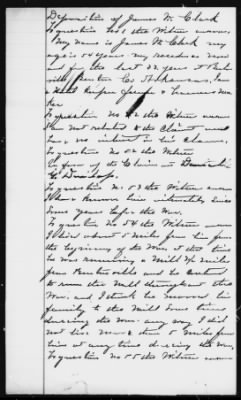 Deposition of James W. Clark
To question No 1 the Witness answers
My name is James W. Clark my
age is 54 years my residence now
and for the last 22 years is Bent
ville Benton Co Arkansas, am
a and Harness Ma
ker
To question No 2 the Witness answers
I am not related to the Claimant and
have no interest in his Claim.
To question No 52 the Witness
the Claimant
G.
To question No. 53 the Witness answers
I have known him intimately since
some years before the War.
To question No 54 the Witness answers
I lived about 5 miles from him from
the beginning of the War. at this time
he was running a Mill 4 miles
from Bentonville and he continued
to run the Mill throughout the
War. and I think he moved his
family to the Mill some time
during the War. any way I did
not live more than 5 miles from
him at any time during the War.
To question No 55 the Witness answers